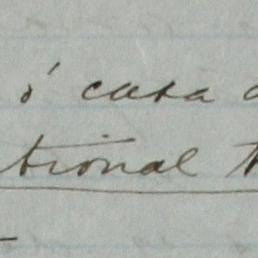 ó casa
tional